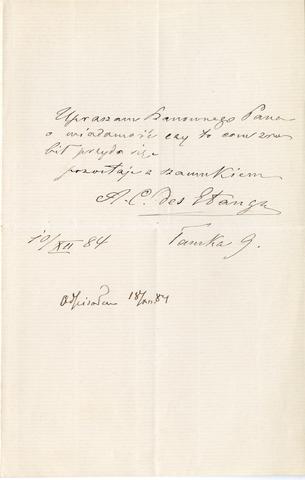 Upraszam Szanownego Pana
o wiadomość czy to com zro
bił przyda się
pozostaję z szacunkiem
A. C. des Etangs
10/XII 84 Tamka 9.
Odpisałem 18/XII 84